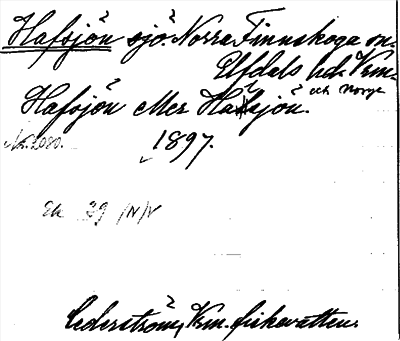 Hafsjön sjö. Norra Finnskoga sn.
Elfdals hd. Vrm.
och Norge
Hafsjön eller Hafsjön.
No. 2080. 1897.
Ek 39 N/V
Cederström, Vrm. fiskevatten.